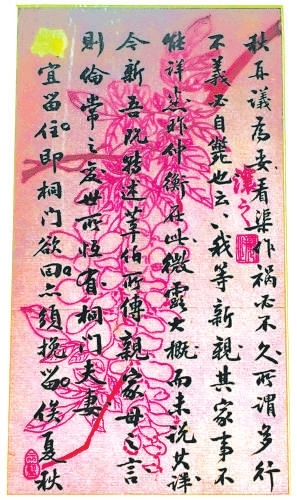 秋再議為要看渠作禍必不久所謂多行
不義必自斃也云云我等新親其家事不
能詳悉昨仲衡在此微露大概而未說其詳
今新吾既特述葦伯所傳親家母之言
則倫常之變世所恒有桐门夫妻
宜留住即桐门欲回亦須挽留俟夏秋